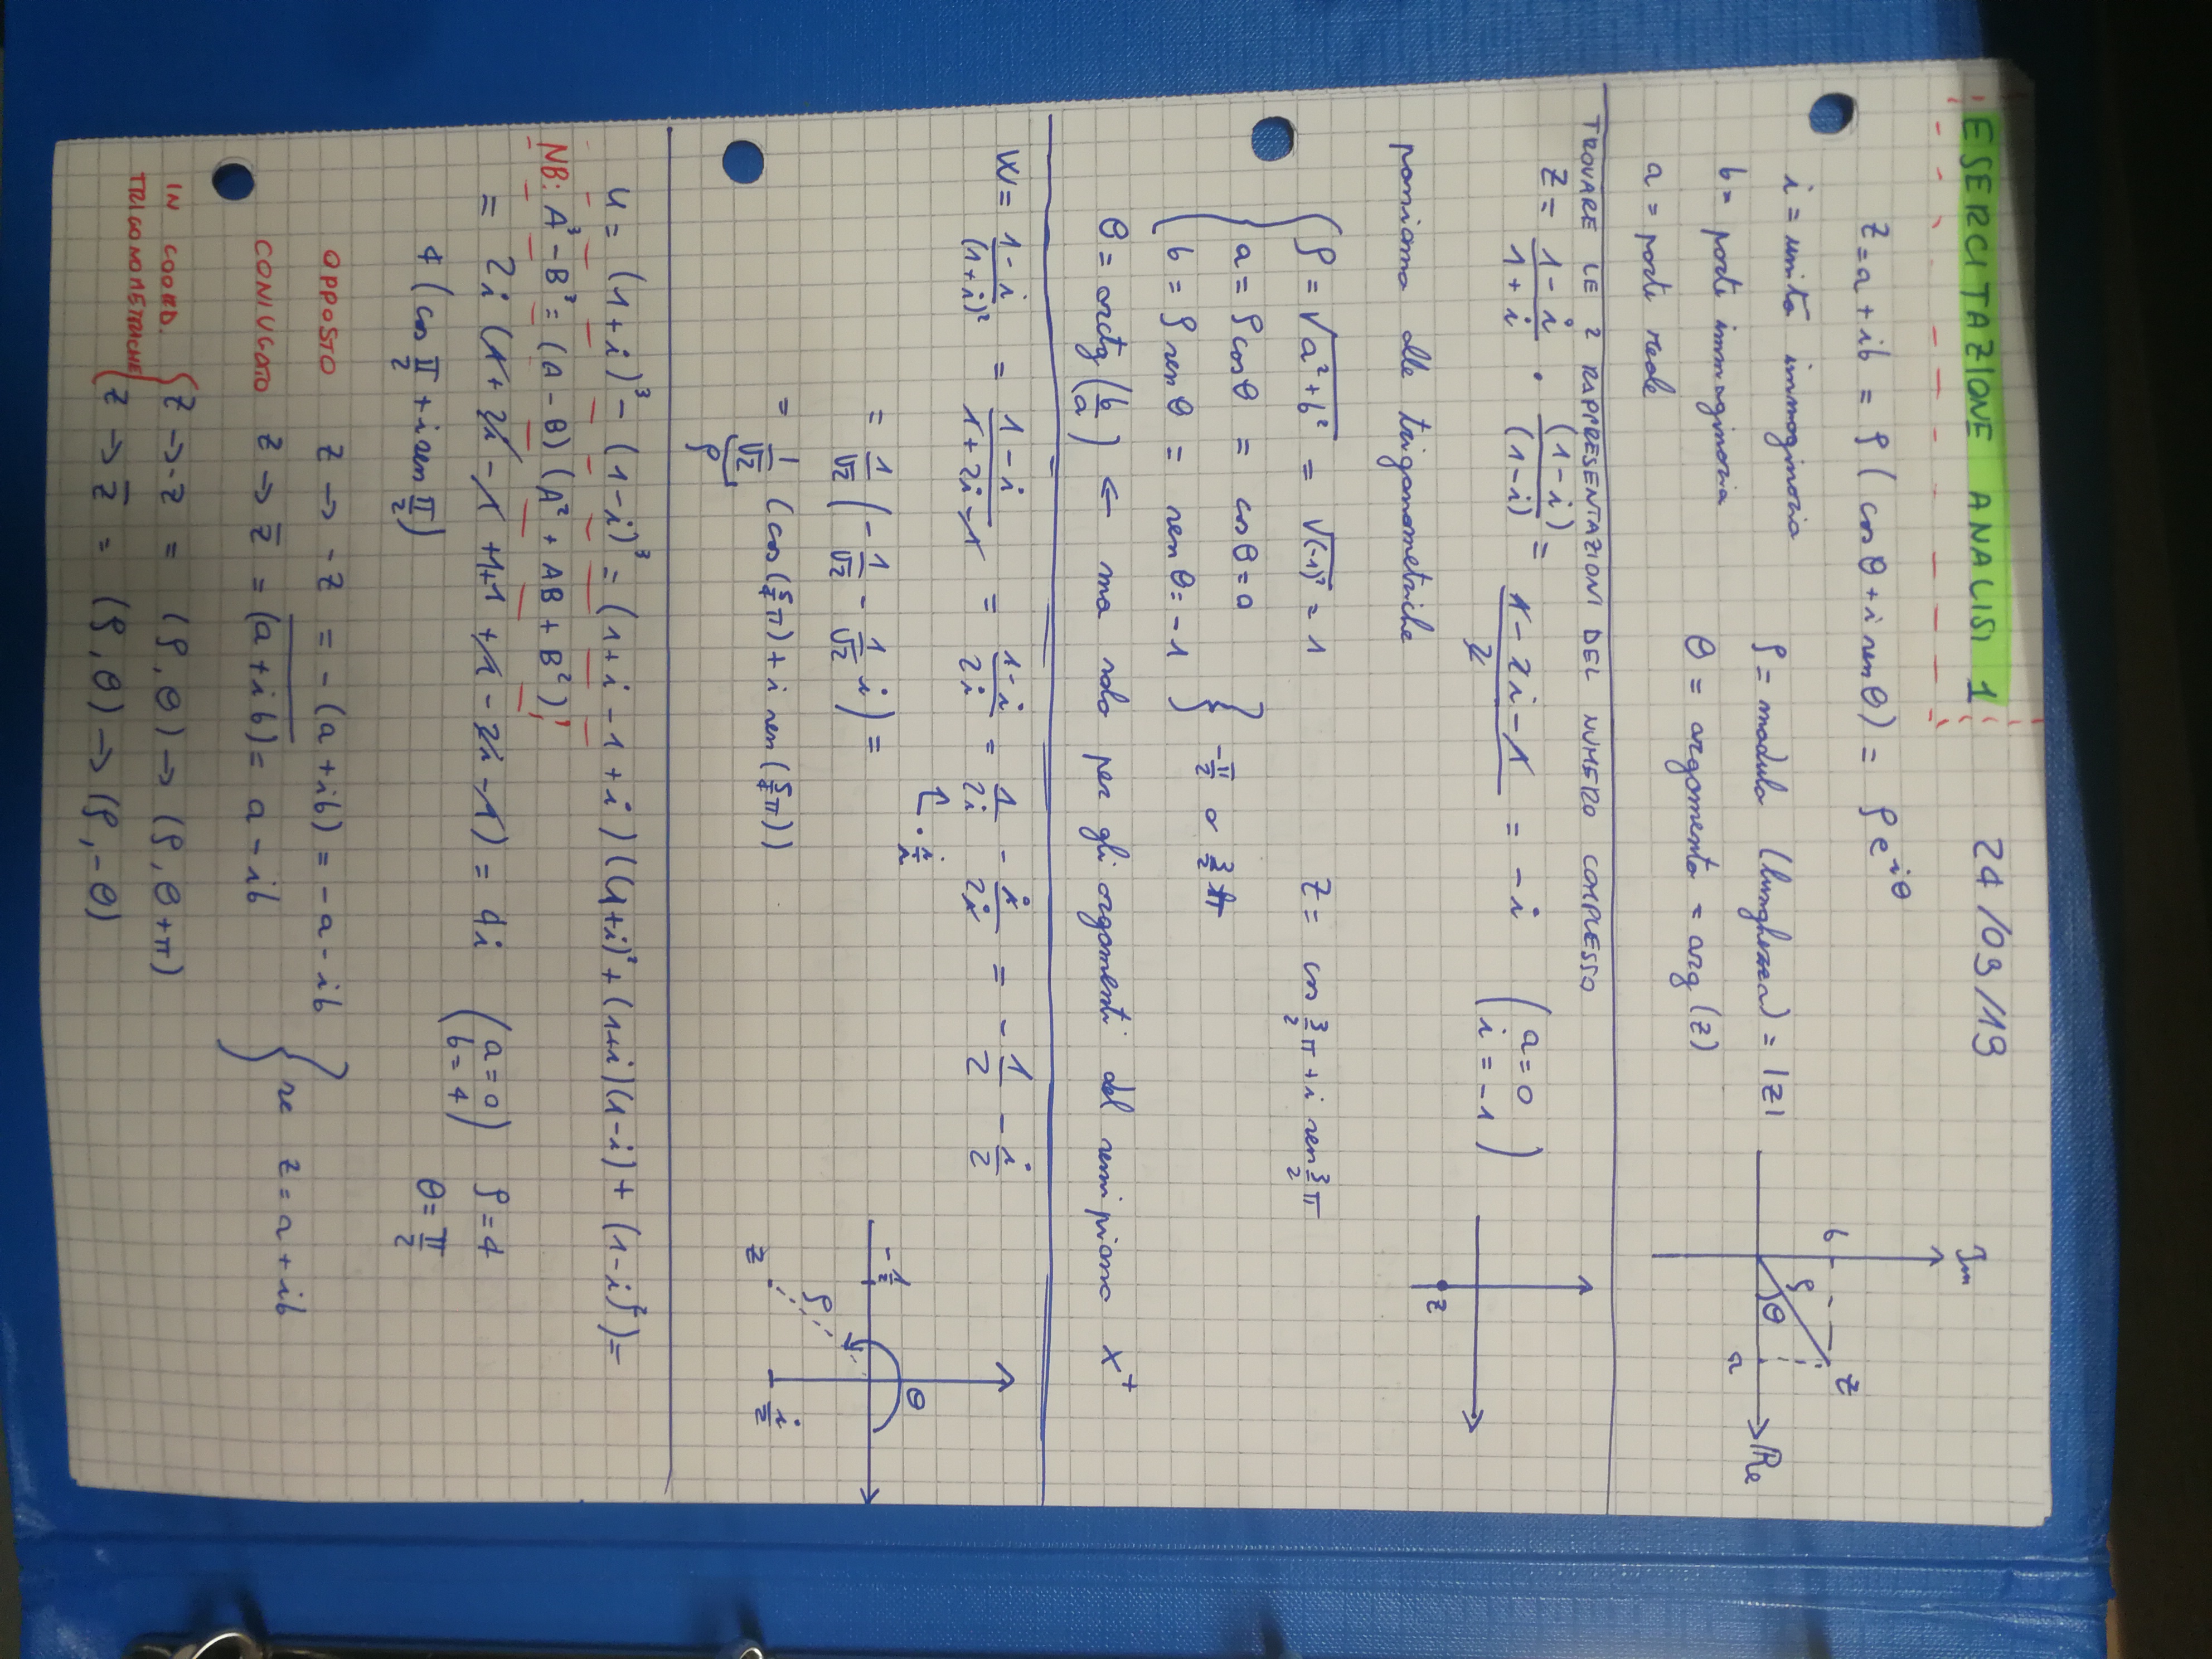 ESERCITAZIONE ANALISI 1 24/09/19
z = a + ib = ρ ( cos θ + i sen θ) = ρ e^iθ
i = unità immaginaria
b = parte immaginaria
a = parte reale
ρ = modulo (lunghezza) = |z|
θ = argomento = arg (z)
Im
b
ρ
θ
z
a
Re
TROVARE LE 2 RAPPRESENTAZIONI DEL NUMERO COMPLESSO
z = (1 - i)/(1 + i) · (1 - i)/(1 - i) = (1 - 2i - 1)/2 = - i (a = 0
i = -1)
z
passiamo alle trigonometriche
{ρ = √(a² + b²) = √(-1)² = 1 z = cos 3/2 π + i sen 3/2 π
a = ρ cos θ = cos θ = 0
b = ρ sen θ = sen θ = -1 } -π/2 o 3/2 π
θ = arctg (b/a) ← ma solo per gli argomenti del semipiano x⁺
W = (1 - i)/(1 + i)² = (1 - i)/(1 + 2i - 1) = (1 - i)/2i = 1/2i - i/2i = - 1/2 - i/2
· i/i
= 1/√2 ( - 1/√2 - 1/√2 i ) =
= 1/√2 (cos (5/4 π) + i sen (5/4 π))
ρ
-1/2
z
ρ
θ
i/2
u = (1 + i)³ - (1 - i)³ = (1 + i - 1 + i) ((1 + i)² + (1 + i)(1 - i) + (1 - i)²) =
NB: A³ - B³ = (A - B) (A² + AB + B²)
= 2i (1 + 2i - 1 + 1 + 1 + 1 - 2i - 1) = 4i (a = 0
b = 4) ρ = 4
θ = π/2
4 (cos π/2 + i sen π/2)
OPPOSTO z → - z = - (a + ib) = - a - ib
CONIUGATO z → z̅ = (a + ib) = a - ib } se z = a + ib
IN COORD.
TRIGONOMETRICHE
{ z → - z = (ρ, θ) → (ρ, θ + π)
z → z̅ = (ρ, θ) → (ρ, - θ)